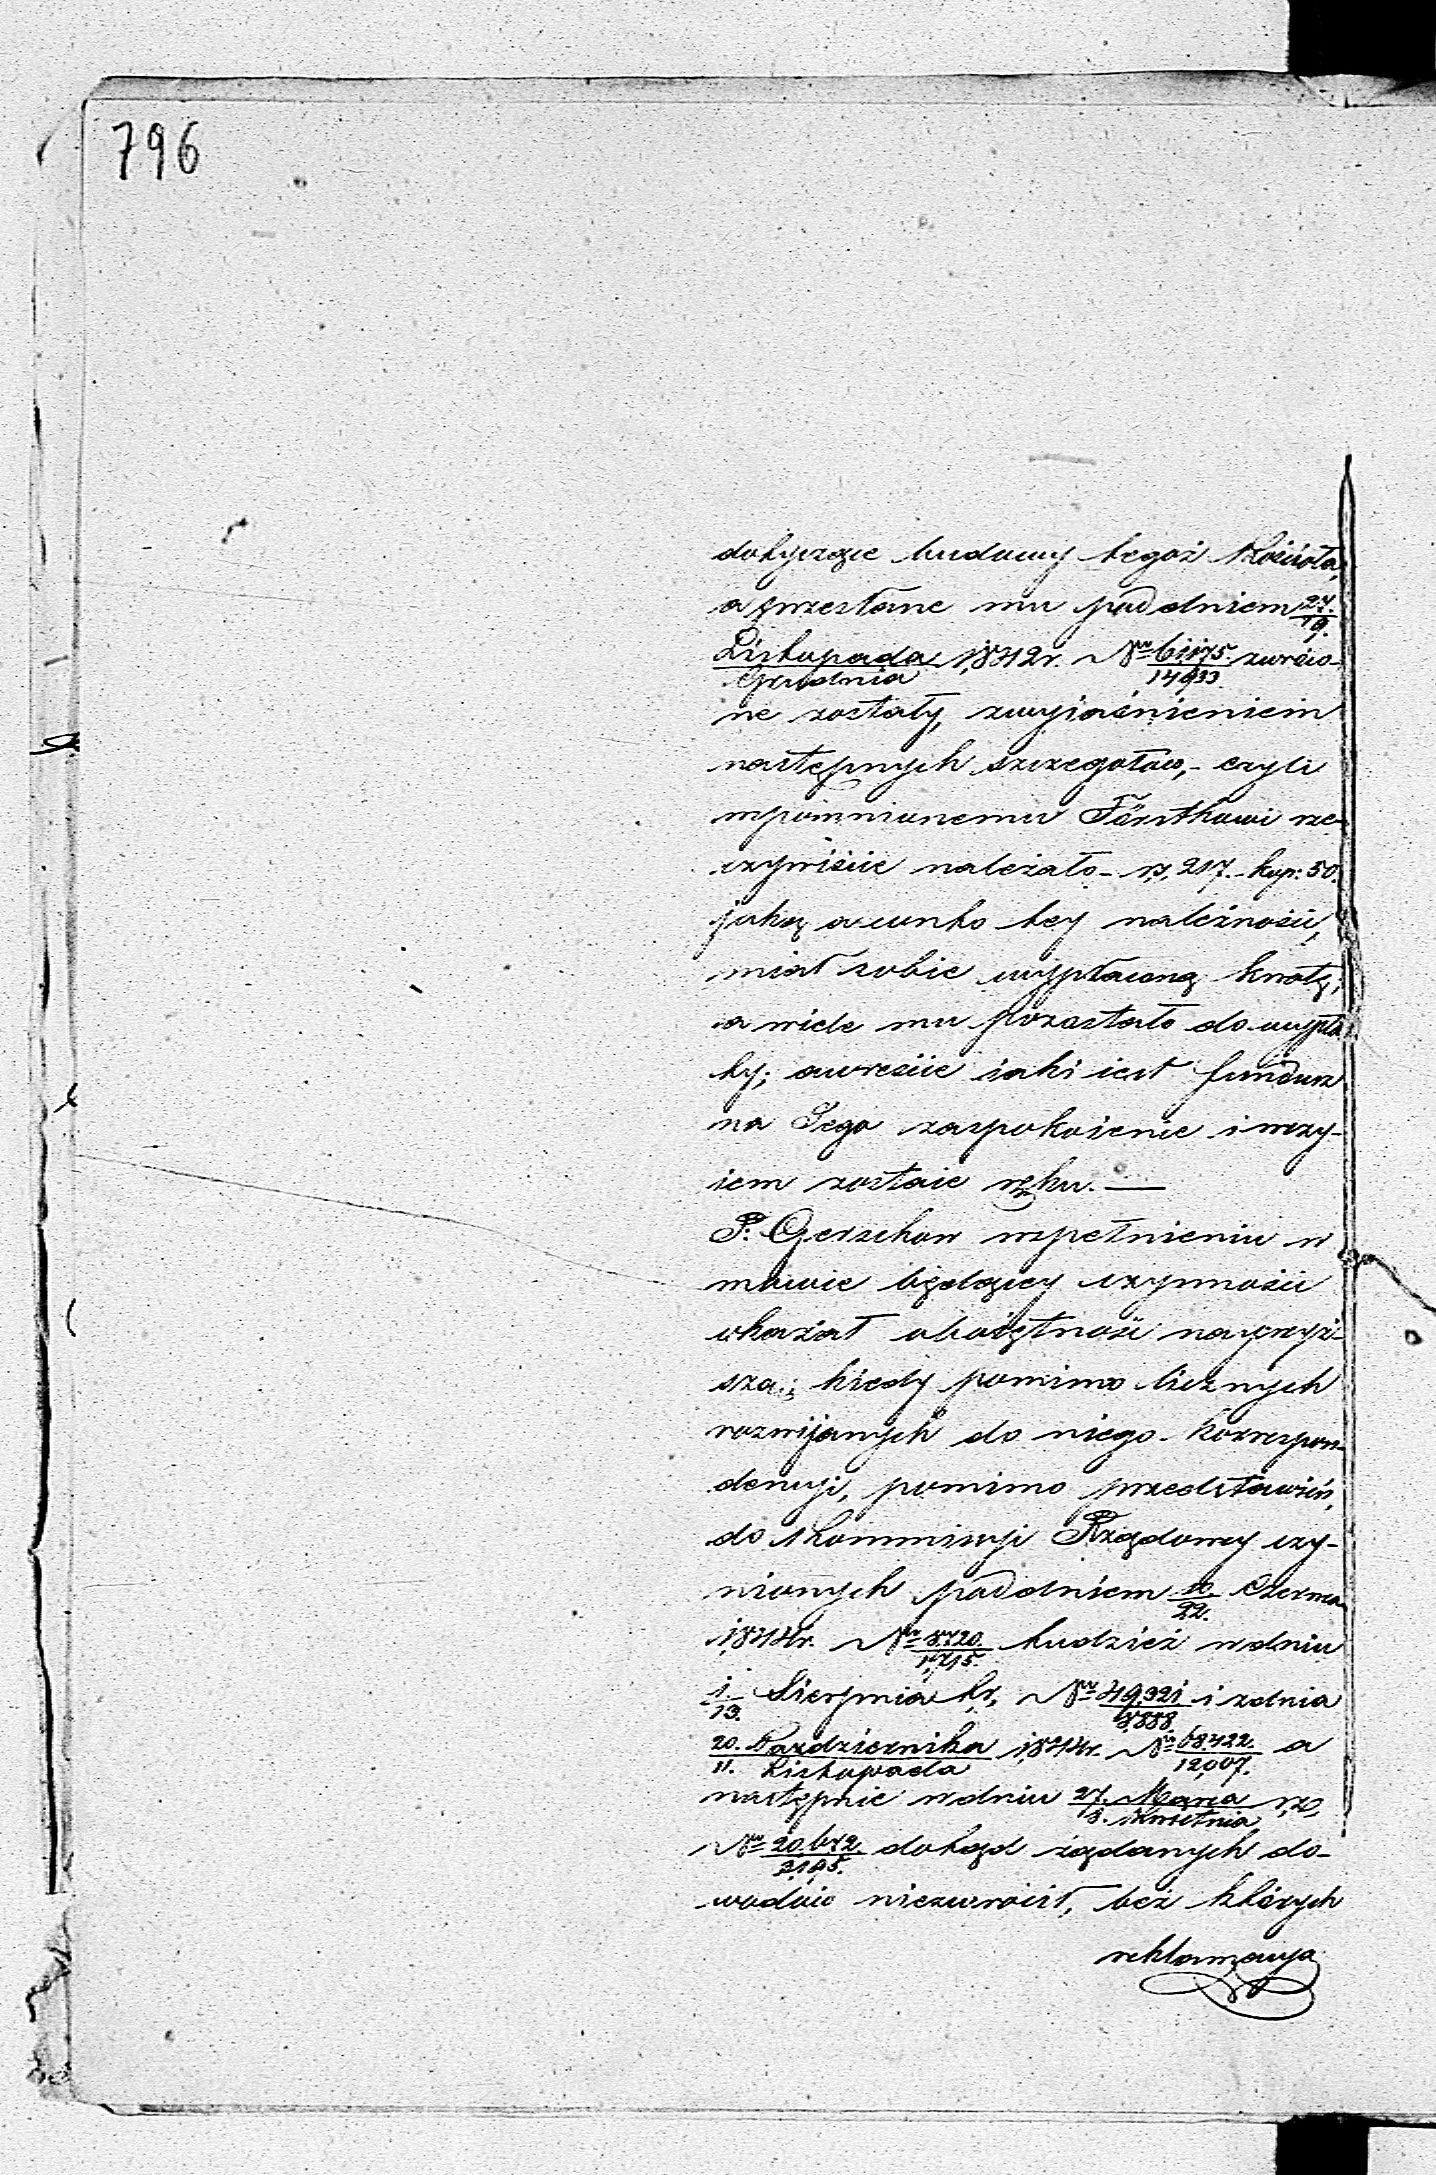 796
dotyczące budowy tegoż Kościoła,
a przesłane mu pod dniem 27./9.
Listopada/Grudnia 1842 r. Nr 61175./14933. zwróco-
ne zostały, z wyjaśnieniem
następnych szczegółów, - czyli
wpomnionemu Förstkowi rze-
czywiście należało - rs. 217. kop: 50.
jaką a conto tey należności,
miał sobie wypłaconą kwotę;
a wiele mu pozostało do wypła
ty; a wreście iaki iest fundusz
na Jego zaspokoienie i w czy-
iem zostaie ręku. —
P. Gerschow w spełnieniu w
mowie będącey czynności
okazał oboiętność naywyż-
szą; kiedy pomimo licznych
rozwijanych do niego - korrespon-
dencyi, pomimo przedstawień,
do Kommissyi Rządowey czy-
nionych pod dniem 10./22. Czerwca
1844 r. Nr 8720./1715. tudzież w dniu
1./13. Sierpnia t.r. Nr 49,321/8888 i z dnia
20. Października/11. Listopada 1844 r. Nr 68422./12007. a
następnie w dniu 27. Marca/8. Kwietnia r.b.
Nr 20,672./3195. dotąd żądanych do-
wodów niezwrócił, bez których
reklamacya